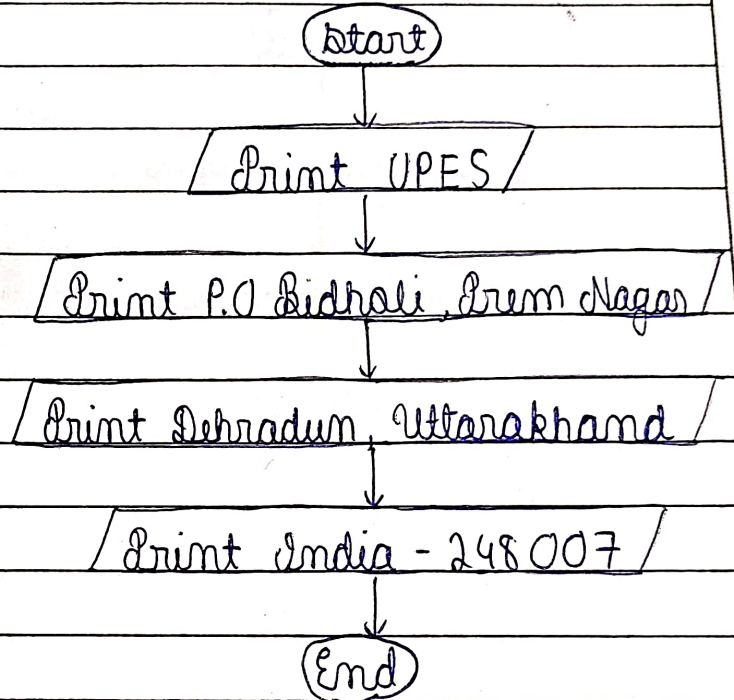 Start
Print UPES
Print P.O Bidholi, Prem Nagar
Print Dehradun, Uttarakhand
Print India - 248007
End